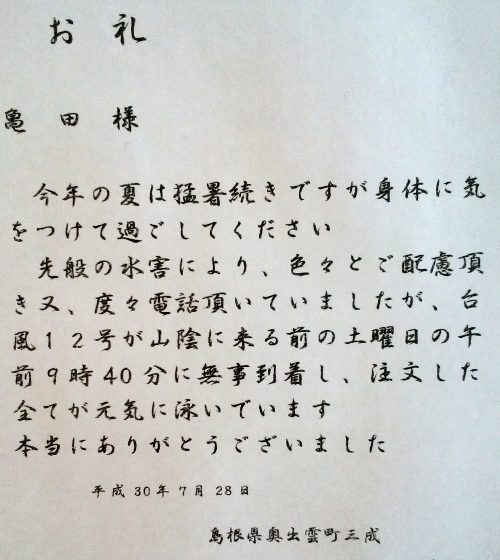 お礼
亀田様
今年の夏は猛暑続きですが身体に気
をつけて過ごしてください
先般の水害により、色々とご配慮頂
き又、度々電話頂いていましたが、台
風12号が山陰に来る前の土曜日の午
前9時40分に無事到着し、注文した
全てが元気に泳いでいます
本当にありがとうございました
平成30年7月28日
島根県奥出雲町三成